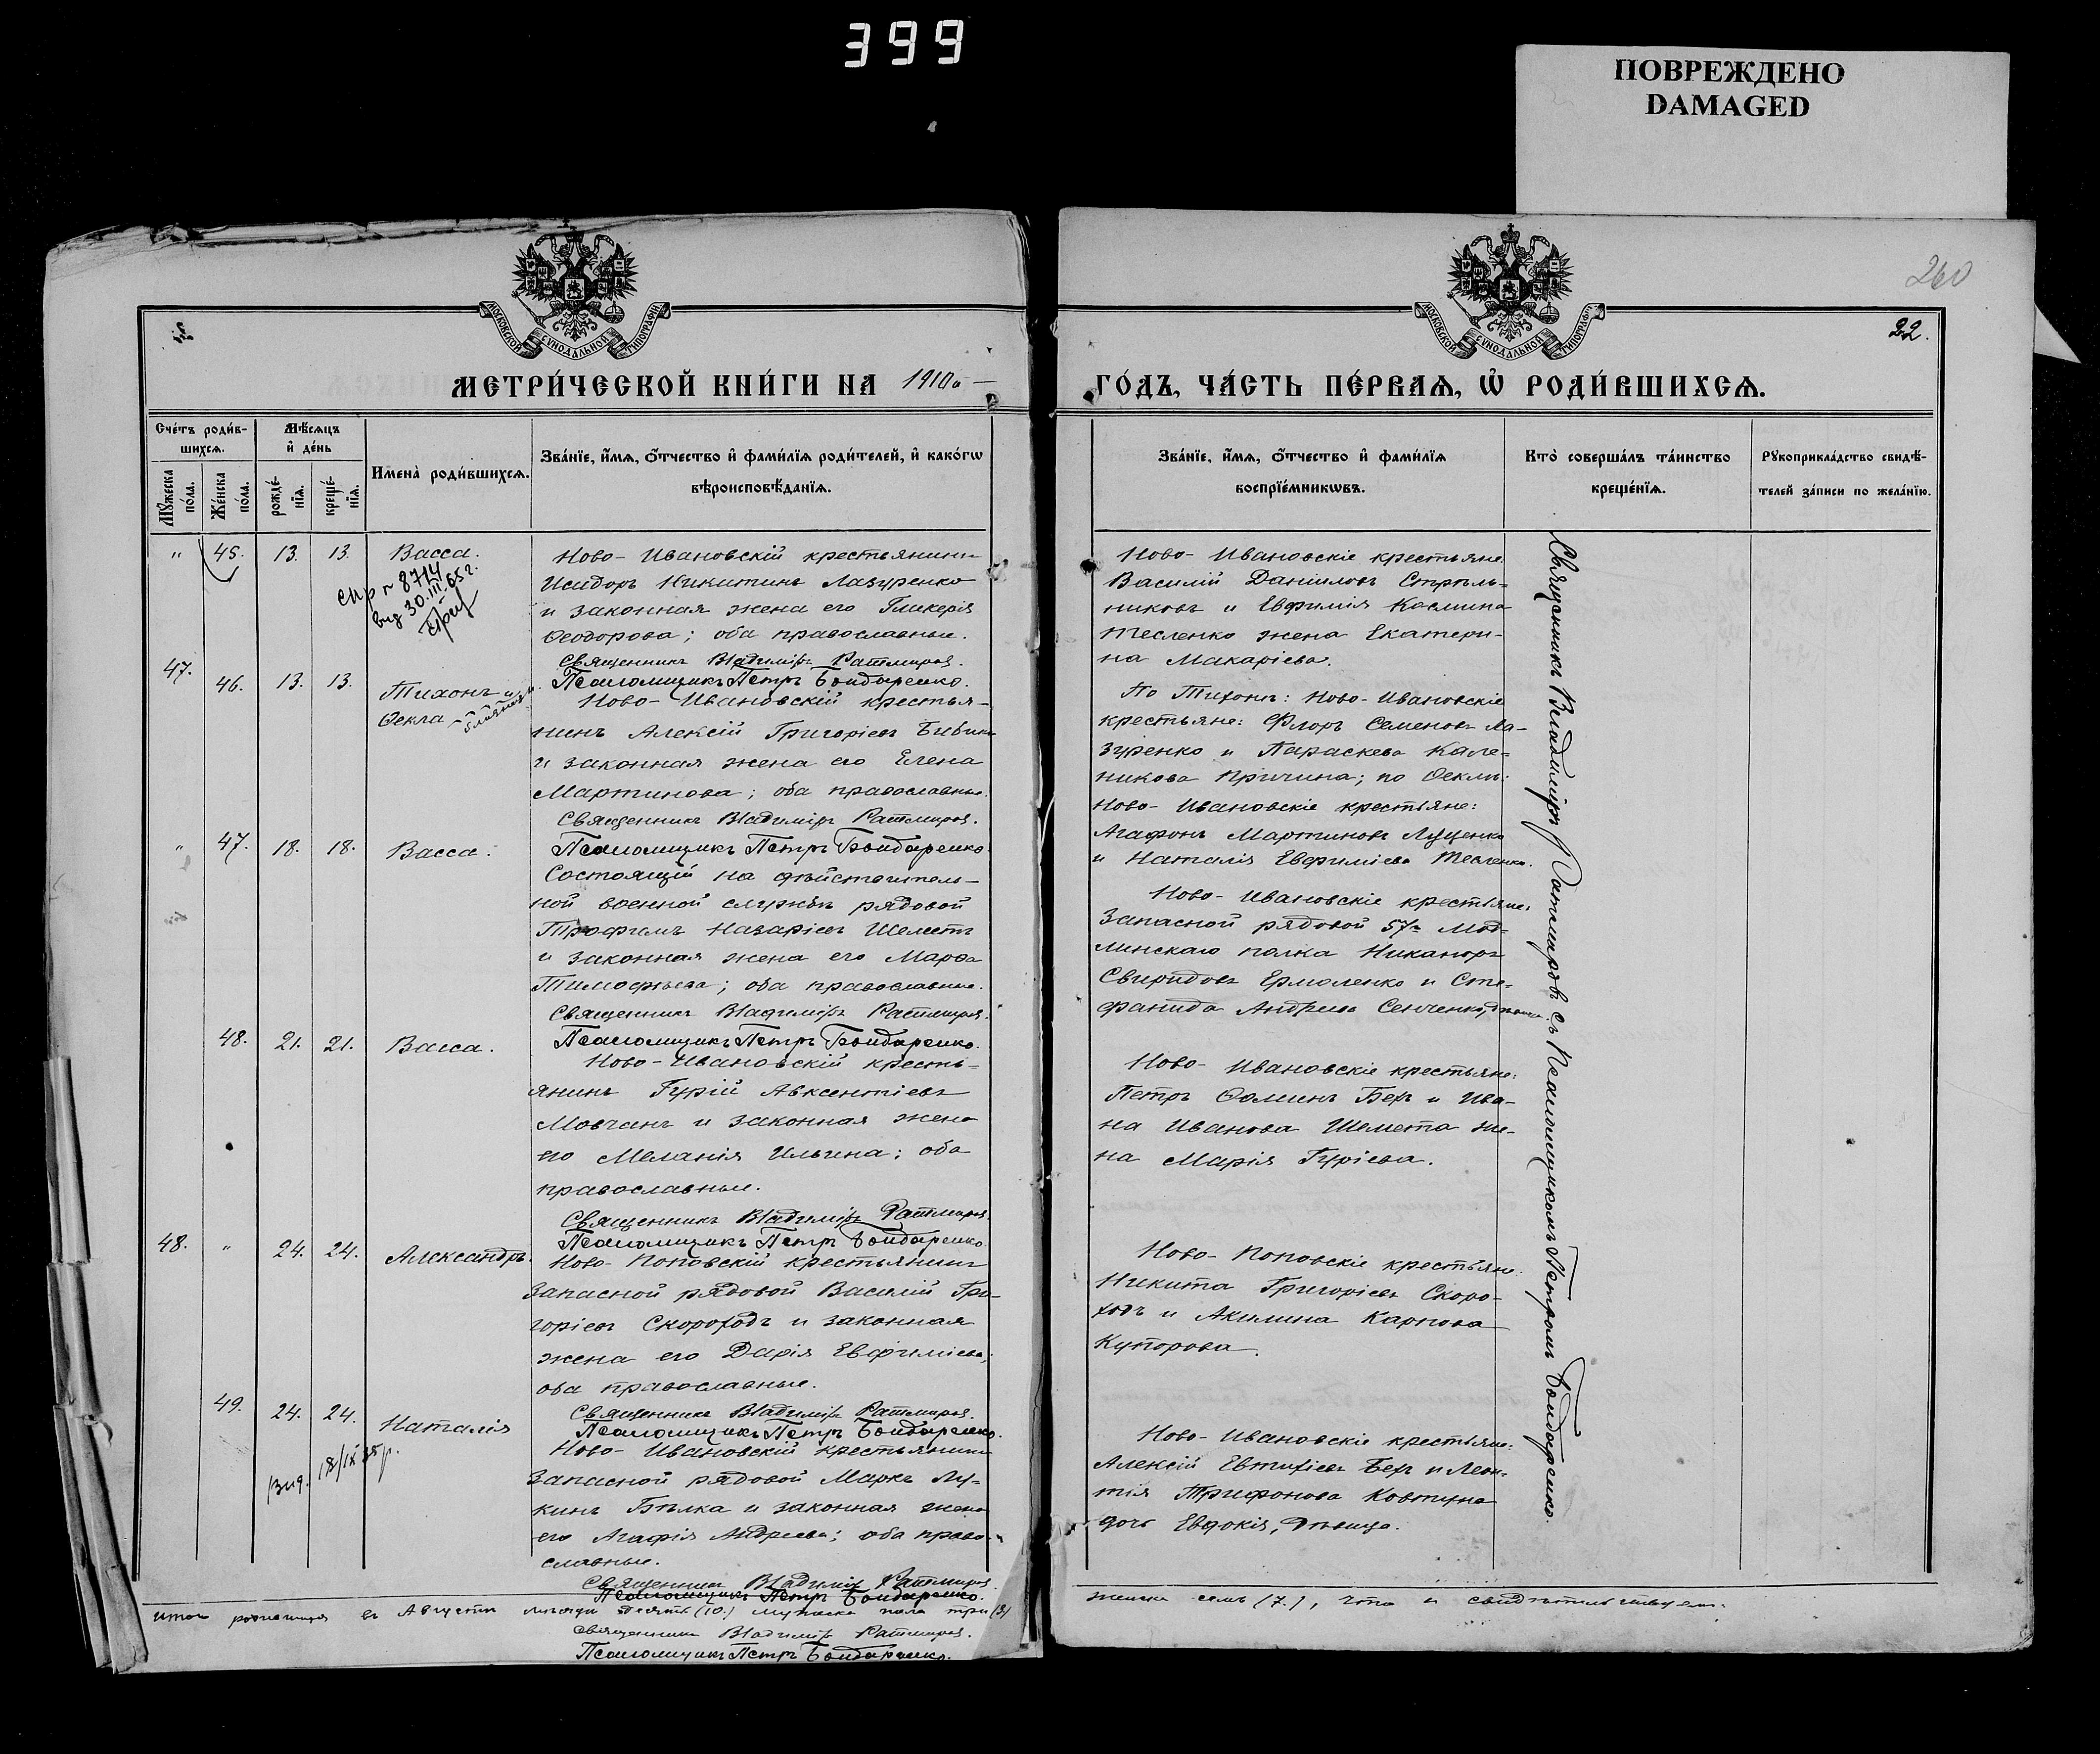 399
ПОВРЕЖДЕНО
DAMAGED
260
22.
МОСКОВСКОЙ СѴНОДАЛЬНОЙ ТИПОГРАФІИ
МОСКОВСКОЙ СѴНОДАЛЬНОЙ ТИПОГРАФІИ
МЕТРИ́ЧЕСКОЙ КНИ́ГИ НА 1910й —
ГО́ДЪ, ЧА́СТЬ ПЕ́РВАЯ, Ѡ҆ РОДИ́ВШИХСЯ.
Сче́тъ роди́в-
шихся.
Мѣ́сяцъ
и҆ де́нь
Мꙋ́жеска
по́ла.
Же́нска
по́ла.
рожде́-
нїя.
креще́-
нїя.
И҆мена̀ роди́вшихся.
Зва́нїе, и҆́мя, ѻ҆́тчество и҆ фами́лїя роди́телей, и҆ како́гѡ
вѣроисповѣ́данїя.
Зва́нїе, и҆́мя, ѻ҆́тчество и҆ фами́лїя
воспрїе́мникѡвъ.
Кто̀ соверша́лъ та́инство
креще́нїя.
Рꙋкоприкла́дство свидѣ́-
телей за́писи по жела́нїю.
" 45. 13. 13. Васса.
Ново-Ивановскій крестьянинъ
Исидоръ Никитинъ Лазуренко
и законная жена его Гликерія
Ѳеодорова; оба православные.
Священникъ Владиміръ Ратмировъ.
Псаломщикъ Петръ Бондаренко.
8714
30.III.65г.
Ново-Ивановскіе крестьяне
Василій Даніиловъ Стрѣль-
никовъ и Евфимія Косьмина
Тесленко жена Екатери-
на Макаріева.
47. 46. 13. 13. Тихонъ и
Ѳекла – близнецы
Ново-Ивановскій крестья-
нинъ Алексій Григоріевъ
и законная жена его Елена
Мартинова; оба православные.
Священникъ Владиміръ Ратмировъ.
Псаломщикъ Петръ Бондаренко.
По Тихонѣ: Ново-Ивановскіе
крестьяне: Флоръ Семеновъ Ла-
зуренко и Параскева Кале-
никова Причина; по Ѳеклѣ:
Ново-Ивановскіе крестьяне:
Агафонъ Мартиновъ Луценко
и Наталія Евфиміева Тесленко.
" 47. 18. 18. Васса.
Состоящій на дѣйствитель-
ной военной службѣ рядовой
Трофимъ Назаріевъ Шеметъ
и законная жена его Марѳа
Тимофѣева; оба православные.
Священникъ Владиміръ Ратмировъ.
Псаломщикъ Петръ Бондаренко.
Ново-Ивановскіе крестьяне:
Запасной рядовой 57го Мод-
линскаго полка Никаноръ
Свиридовъ Ермоленко и Сте-
фанида Андреева Сенченко, дѣвица.
48. 21. 21. Васса.
Ново-Ивановскій кресть-
янинъ Гурій Авксентіевъ
Мовчанъ и законная жена
его Меланія Ильина; оба
православные.
Священникъ Владиміръ Ратмировъ.
Псаломщикъ Петръ Бондаренко.
Ново-Ивановскіе крестьяне:
Петръ Ѳоминъ Бехъ и Ива-
на Иванова Шемета же-
на Марія Гуріева.
48. " 24. 24. Александръ.
Ново-Поповскій крестьянинъ
Запасной рядовой Василій Гри-
горіевъ Скороходъ и законная
жена его Дарія Евфиміева;
оба православные.
Священникъ Владиміръ Ратмировъ.
Псаломщикъ Петръ Бондаренко.
Ново-Поповскіе крестьяне:
Никита Григоріевъ Скоро-
ходъ и Акилина Карпова
Купорова.
49. 24. 24. Наталія
Ново-Ивановскій крестьянинъ
Запасной рядовой Маркъ Лу-
кинъ Бѣлка и законная жена
его Агафія Андреева; оба право-
славные.
Священникъ Владиміръ Ратмировъ.
Псаломщикъ Петръ Бондаренко.
Ново-Ивановскіе крестьяне:
Алексій Евтихіевъ Бехъ и Леон-
тія Трифонова Ковтуна
дочь Евдокія, дѣвица.
Священникъ Владиміръ Ратмировъ съ Псаломщикомъ Петромъ Бондаренко.
Итого родившихся въ Августѣ мѣсяцѣ десять (10.) мужеска пола три (3)
женска семь (7.), что и свидѣтельствуемъ:
Священникъ Владиміръ Ратмировъ.
Псаломщикъ Петръ Бондаренко.